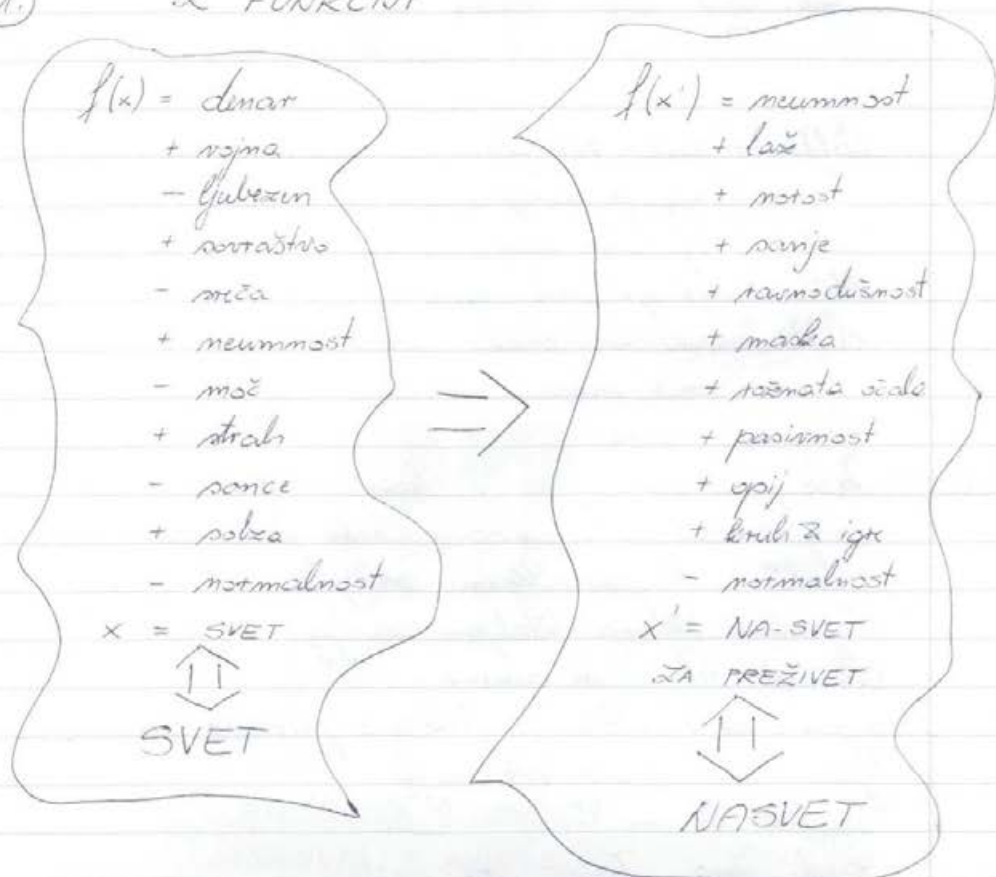 1.) 2 FUNKCIJI
f(x) = denar
+ vojna
- ljubezen
+ sovraštvo
- sreča
+ neumnost
- moč
+ strah
- sonce
+ solza
- normalnost
x = SVET
SVET
f(x') = neumnost
+ laž
+ norost
+ sanje
+ ravnodušnost
+ maska
+ rožnata očala
+ pasivnost
+ opij
+ kruh & igre
- normalnost
x' = NA-SVET
ZA PREŽIVET
NASVET